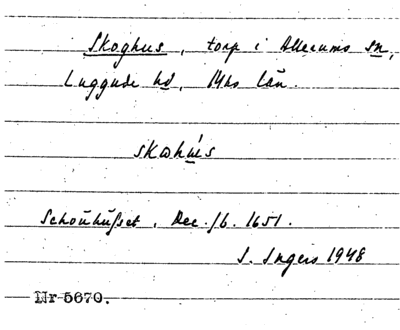 Skoghus, torp i Allerums sn,
Luggude hd, Mhs län.
skωhú̲s
Schouhußet. Dec. jb. 1651.
I. Ingers 1948
Nr 5670.